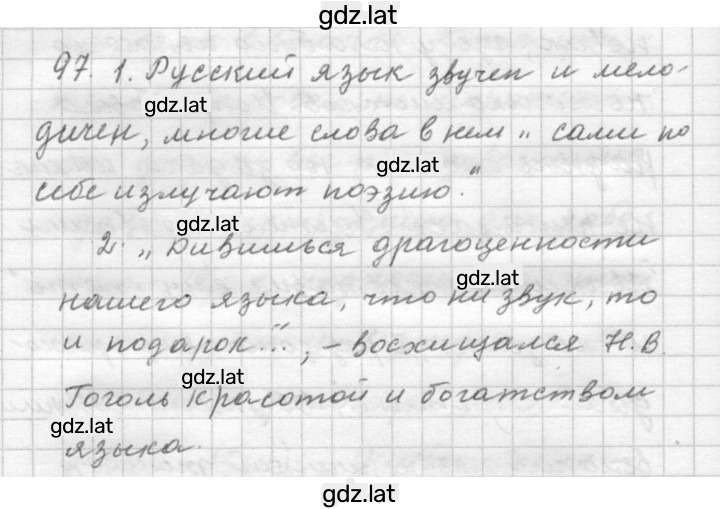 gdz.lat
97. 1. Русский язык звучен и мело-
gdz.lat
дичен, многие слова в нем „ сами по
gdz.lat
себе излучают поэзию."
gdz.lat
2. „ Дивишься драгоценности
gdz.lat
нашего языка, что ни звук, то
и подарок...", - восхищался Н.В.
gdz.lat
Гоголь красотой и богатством
gdz.lat
языка.
gdz.lat